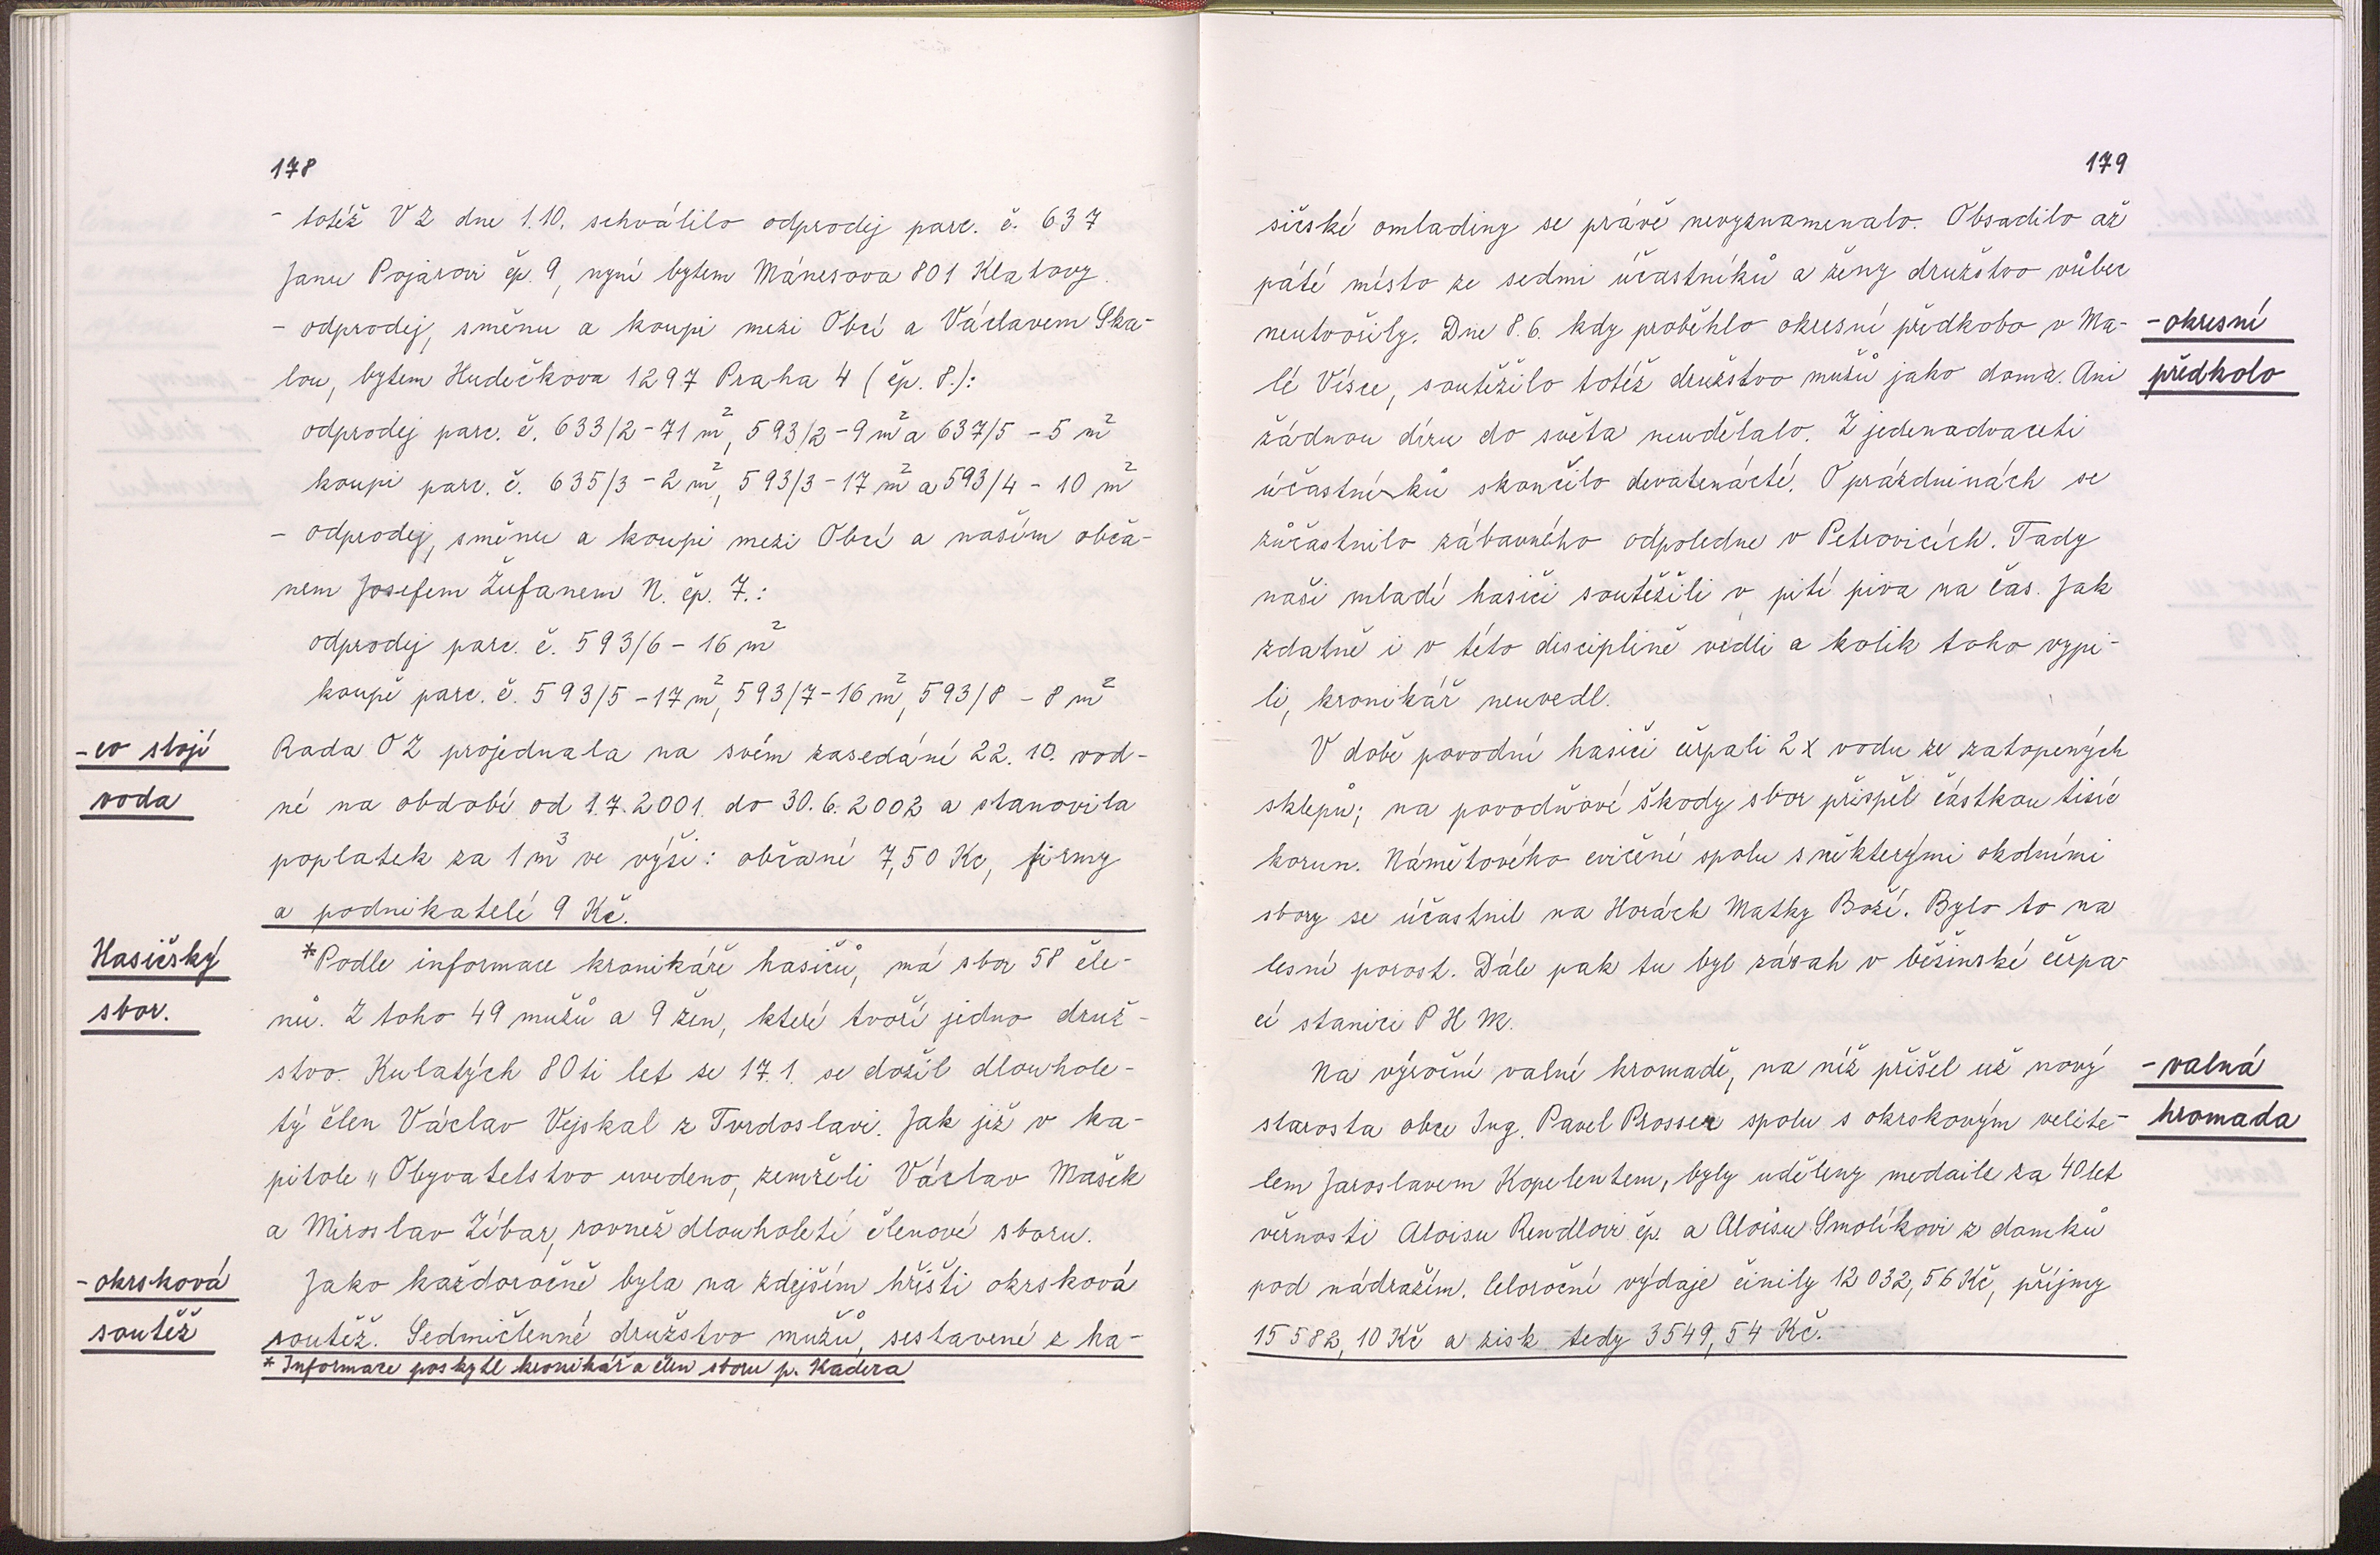 178
- totéž VZ dne 1.10. schválilo odprodej parc. č. 637
Janu Pojarovi čp. 9, nyní bytem Mánesova 801 Klatovy.
- odprodej, směnu a koupi mezi Obcí a Václavem Ska-
lou, bytem Hudečkova 1297 Praha 4 (čp. 8.):
odprodej parc. č. 633/2 - 71 m², 593/2 - 9 m² a 637/5 - 5 m²
koupi parc. č. 635/3 - 2 m², 593/3 - 17 m² a 593/4 - 10 m²
- odprodej, směnu a koupi mezi Obcí a naším obča-
nem Josefem Žufanem N. čp. 7.:
odprodej parc. č. 593/6 - 16 m²
koupě parc. č. 593/5 - 17 m², 593/7 - 16 m², 593/8 - 8 m²
- co stojí
voda
Rada OZ projednala na svém zasedání 22. 10. vod-
né na období od 1.7.2001. do 30.6.2002 a stanovila
poplatek za 1 m³ ve výši: občané 7,50 Kc, firmy
a podnikatelé 9 Kč.
Hasičský
sbor.
*Podle informace kronikáře hasičů, má sbor 58 čle-
nů. Z toho 49 mužů a 9 žen, které tvoří jedno druž-
stvo. Kulatých 80ti let se 17.1. se dožil dlouhole-
tý člen Václav Vejskal z Tvrdoslavi. Jak již v ka-
pitole „Obyvatelstvo uvedeno, zemřeli Václav Mašek
a Miroslav Zíbar, rovnež dlouholetí členové sboru.
- okrsková
soutěž
Jako každoročně byla na zdejším hřišti okrsková
soutěž. Sedmičlenné družstvo mužů, sestavené z ha-
* Informace poskytl kronikář a člen sboru p. Kadera
179
sičské omladiny se právě nevyznamenalo. Obsadilo až
páté místo ze sedmi účastníků a ženy družstvo vůbec
neutvořily. Dne 8.6. kdy proběhlo okresní předkobo v Ma-
lé Vísce, soutěžilo totéž družstvo mužů jako doma. Ani
žádnou díru do světa neudělalo. Z jedenadvaceti
účastníků skončilo devatenácté. O prázdninách se
zůčastnilo zábavného odpoledne v Petrovicích. Tady
naši mladí hasiči soutěžili v pití piva na čas. Jak
zdatně i v této disciplině vedli a kolik toho vypi-
li, kronikář neuvedl.
- okresní
předkolo
V době povodní hasiči čerpali 2x vodu ze zatopených
sklepů; na povodňové škody sbor přispěl částkou tisíc
korun. Námětového cvičení spolu s některými okolními
sbory se účastnil na Horách Matky Boží. Bylo to na
lesní porost. Dále pak tu byl zásah v běšinské čerpa-
cí stanici P H M.
Na výroční valné hromadě, na níž přišel už nový
starosta obce Ing. Pavel Prosser spolu s okrskovým velite-
lem Jaroslavem Kopelentem, byly uděleny medaile za 40 let
věrnosti Aloisu Rendlovi čp. a Aloisu Smolíkovi z domků
pod nádražím. Celoroční výdaje činily 12 032,56 Kč, příjmy
15 582,10 Kč a zisk tedy 3549,54 Kč.
- valná
hromada